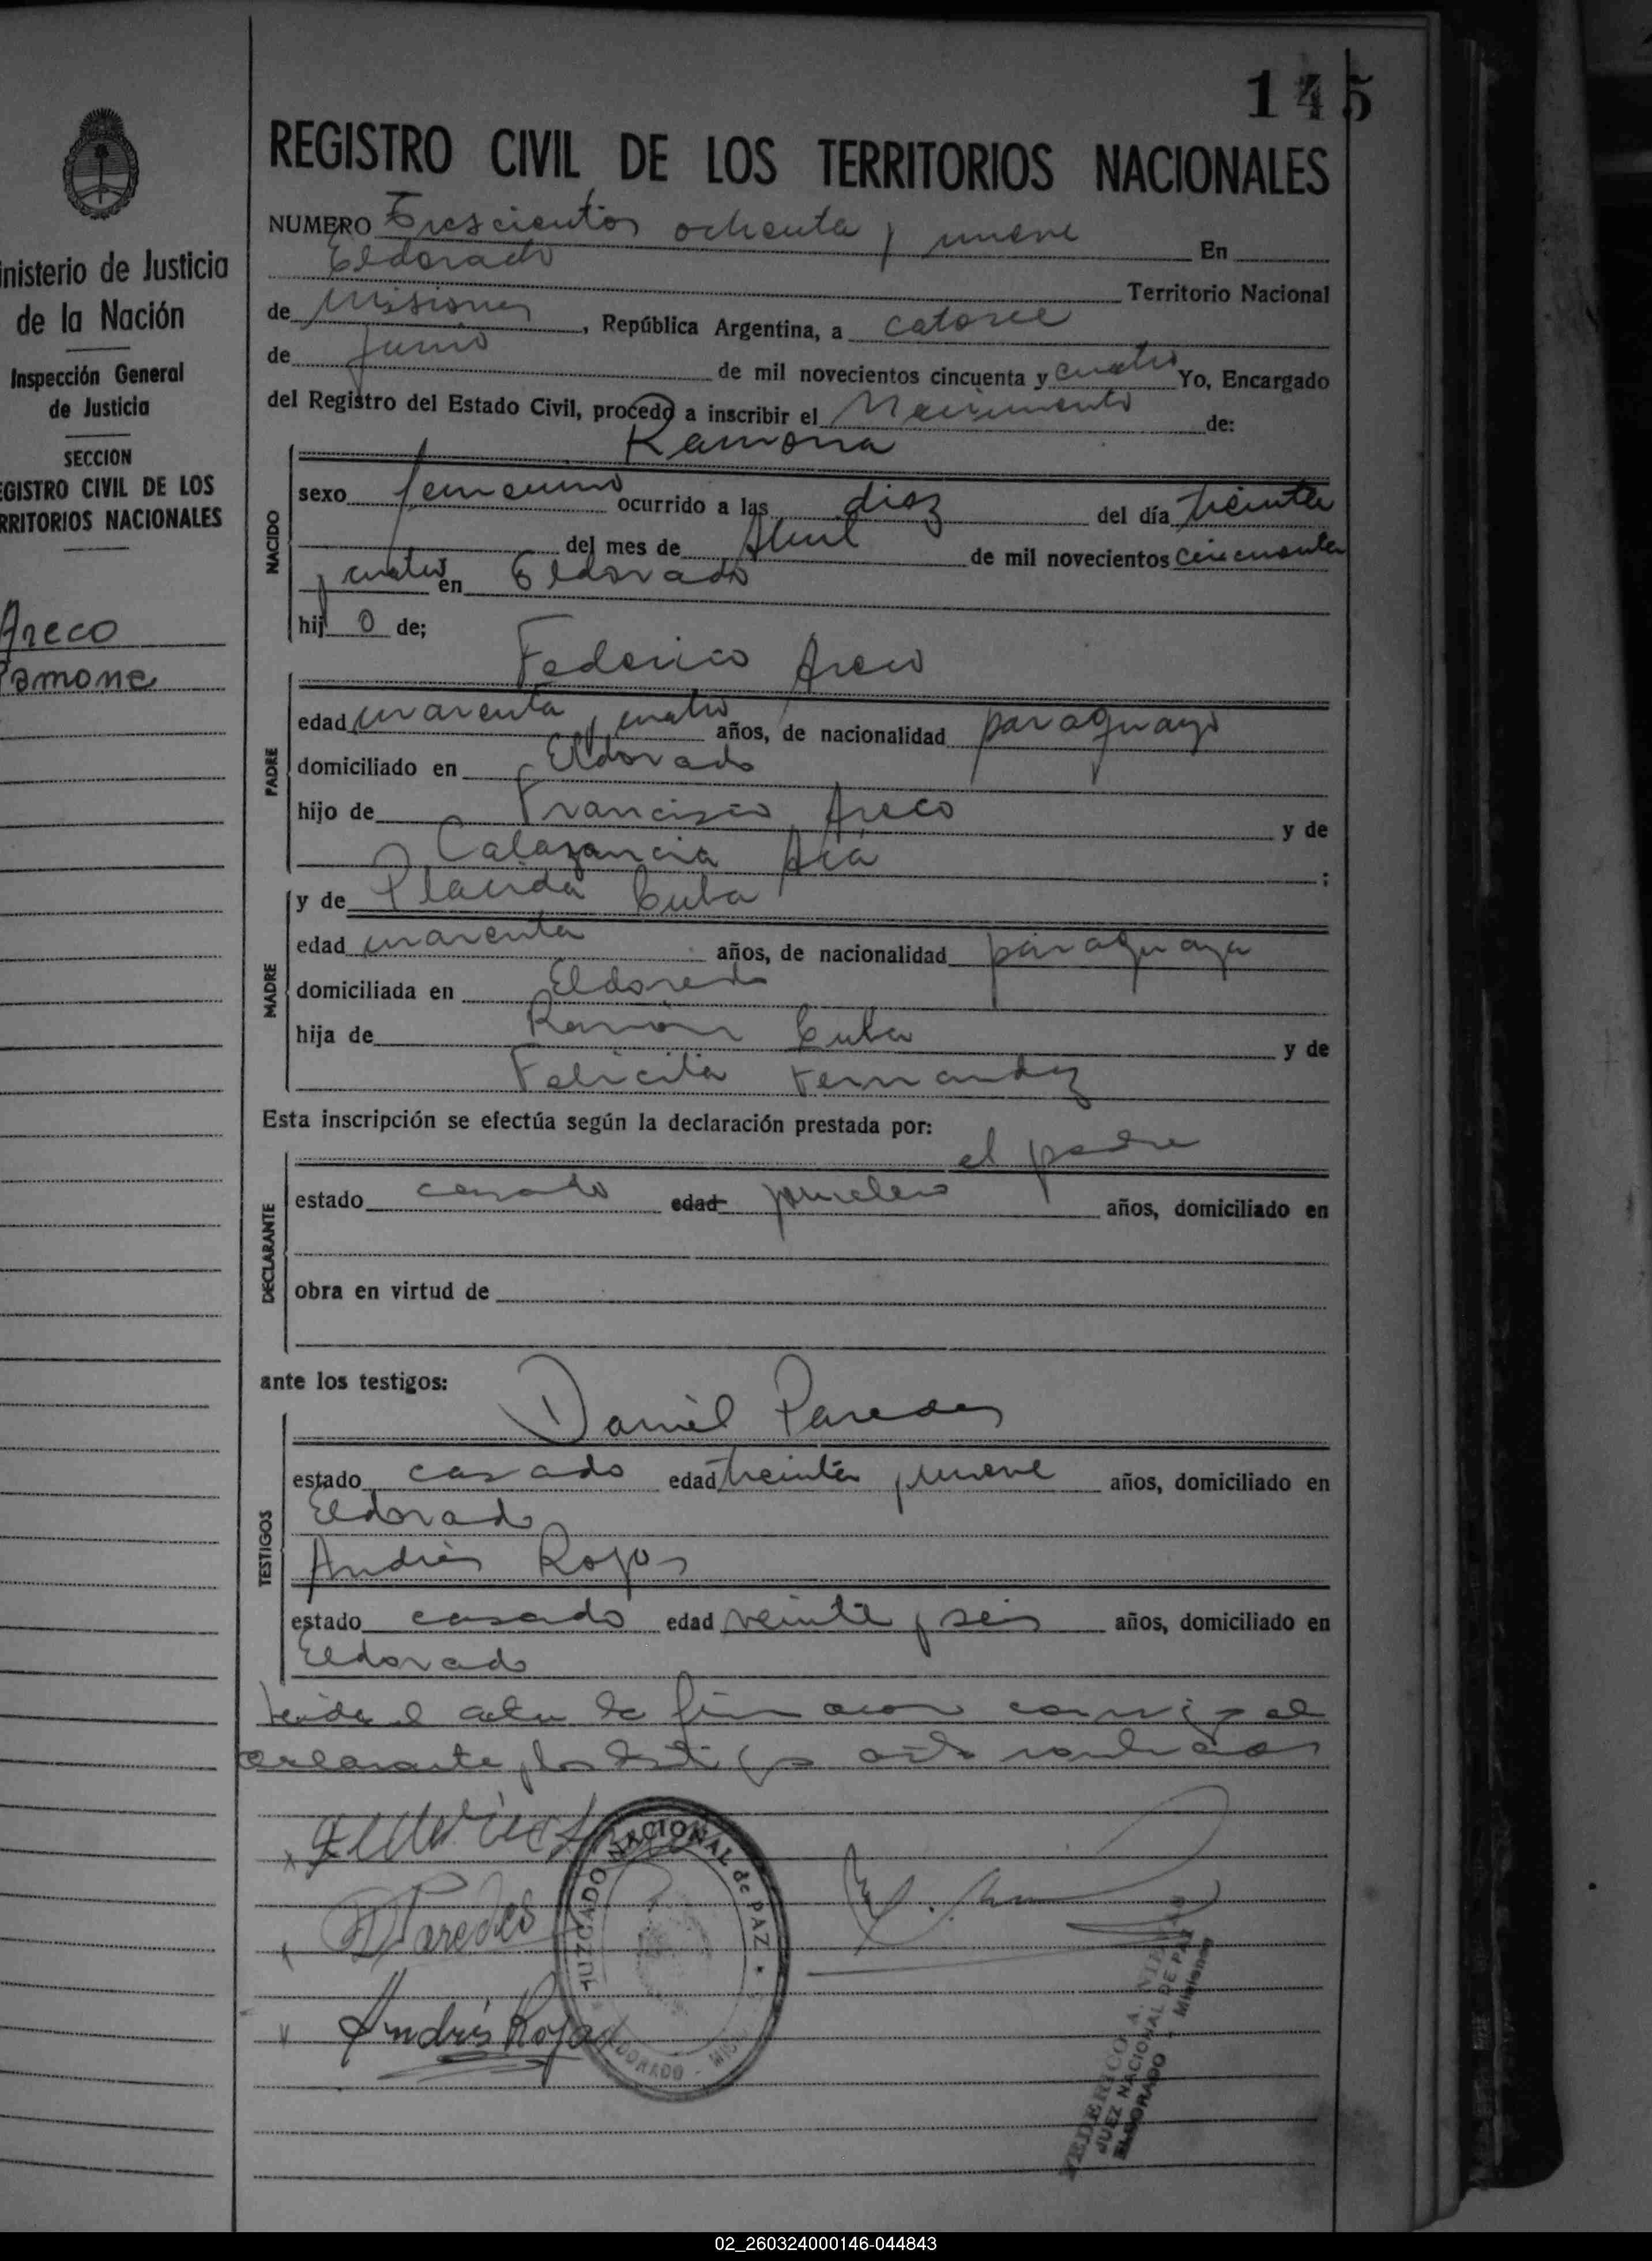 145
REGISTRO CIVIL DE LOS TERRITORIOS NACIONALES
inisterio de Justicia
de la Nación
Inspección General
de Justicia
SECCION
EGISTRO CIVIL DE LOS
RRITORIOS NACIONALES
Areco
Ramona
NUMERO Trescientos ochenta y nueve En
Eldorado Territorio Nacional
de Misiones, República Argentina, a catorce
de Junio de mil novecientos cincuenta y cuatro Yo, Encargado
del Registro del Estado Civil, procedo a inscribir el Nacimiento de:
NACIDO
Ramona
sexo femenino ocurrido a las diez del día treinta
del mes de Abril de mil novecientos cincuenta
y cuatro en Eldorado
hij o de;
PADRE
Federico Areco
edad cuarenta y cuatro años, de nacionalidad paraguayo
domiciliado en Eldorado
hijo de Francisco Areco y de
Calazancia ;
MADRE
y de Placida Cuba
edad cuarenta años, de nacionalidad paraguaya
domiciliada en Eldorado
hija de Ramón Cuba y de
Felicita Fernandez
Esta inscripción se efectúa según la declaración prestada por:
DECLARANTE
el padre
estado casado edad años, domiciliado en
obra en virtud de
ante los testigos:
TESTIGOS
Daniel Paredes
estado casado edad treinta y nueve años, domiciliado en
Eldorado
Andrés Rojas
estado casado edad veinte y seis años, domiciliado en
Eldorado
Leida el acta la firman conmigo el
declarante y los testigos
Federico
D Paredes
Andrés Rojas
JUZGADO NACIONAL de PAZ
ELDORADO - MIS
FEDERICO A.
JUEZ NACIONAL DE PAZ
ELDORADO - Misiones
02_260324000146-044843